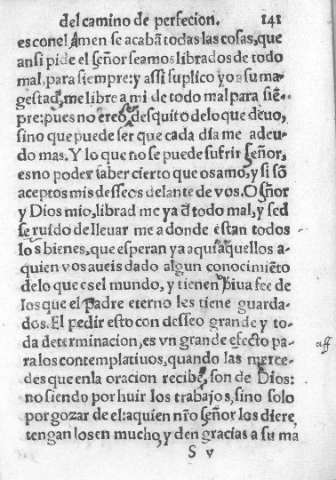 del camino de perfecion. 141
es con el Amen se acabã todas las cosas, que
ansi pide el señor seamos librados de todo
mal, para siempre: y assi suplico yo a su ma-
gestad, me libre a mi de todo mal para siẽ-
pre: pues no creo desquito de lo que deuo,
sino que puede ser que cada dia me adeu-
do mas. Y lo que no se puede sufrir señor,
es no poder saber cierto que os amo, y si sõ
aceptos mis desseos delante de vos. O señor
y Dios mio, librad me ya d̃ todo mal, y sed
seruido de lleuar me adonde estan todos
los bienes, que esperan ya aqui aquellos a-
quien vos aueis dado algun conocimiẽto
de lo que es el mundo, y tienen biua fee de
los que el Padre eterno les tiene guarda-
dos. El pedir esto con desseo grande y to-
da determinacion, es vn grande efecto pa-
ra los contemplatiuos, quando las merce-
des que en la oracion recibẽ, son de Dios:
no siendo por huir los trabajos, sino solo
por gozar de el: a quien nr̃o señor los diere,
tengan los en mucho, y den gracias a su ma
S v